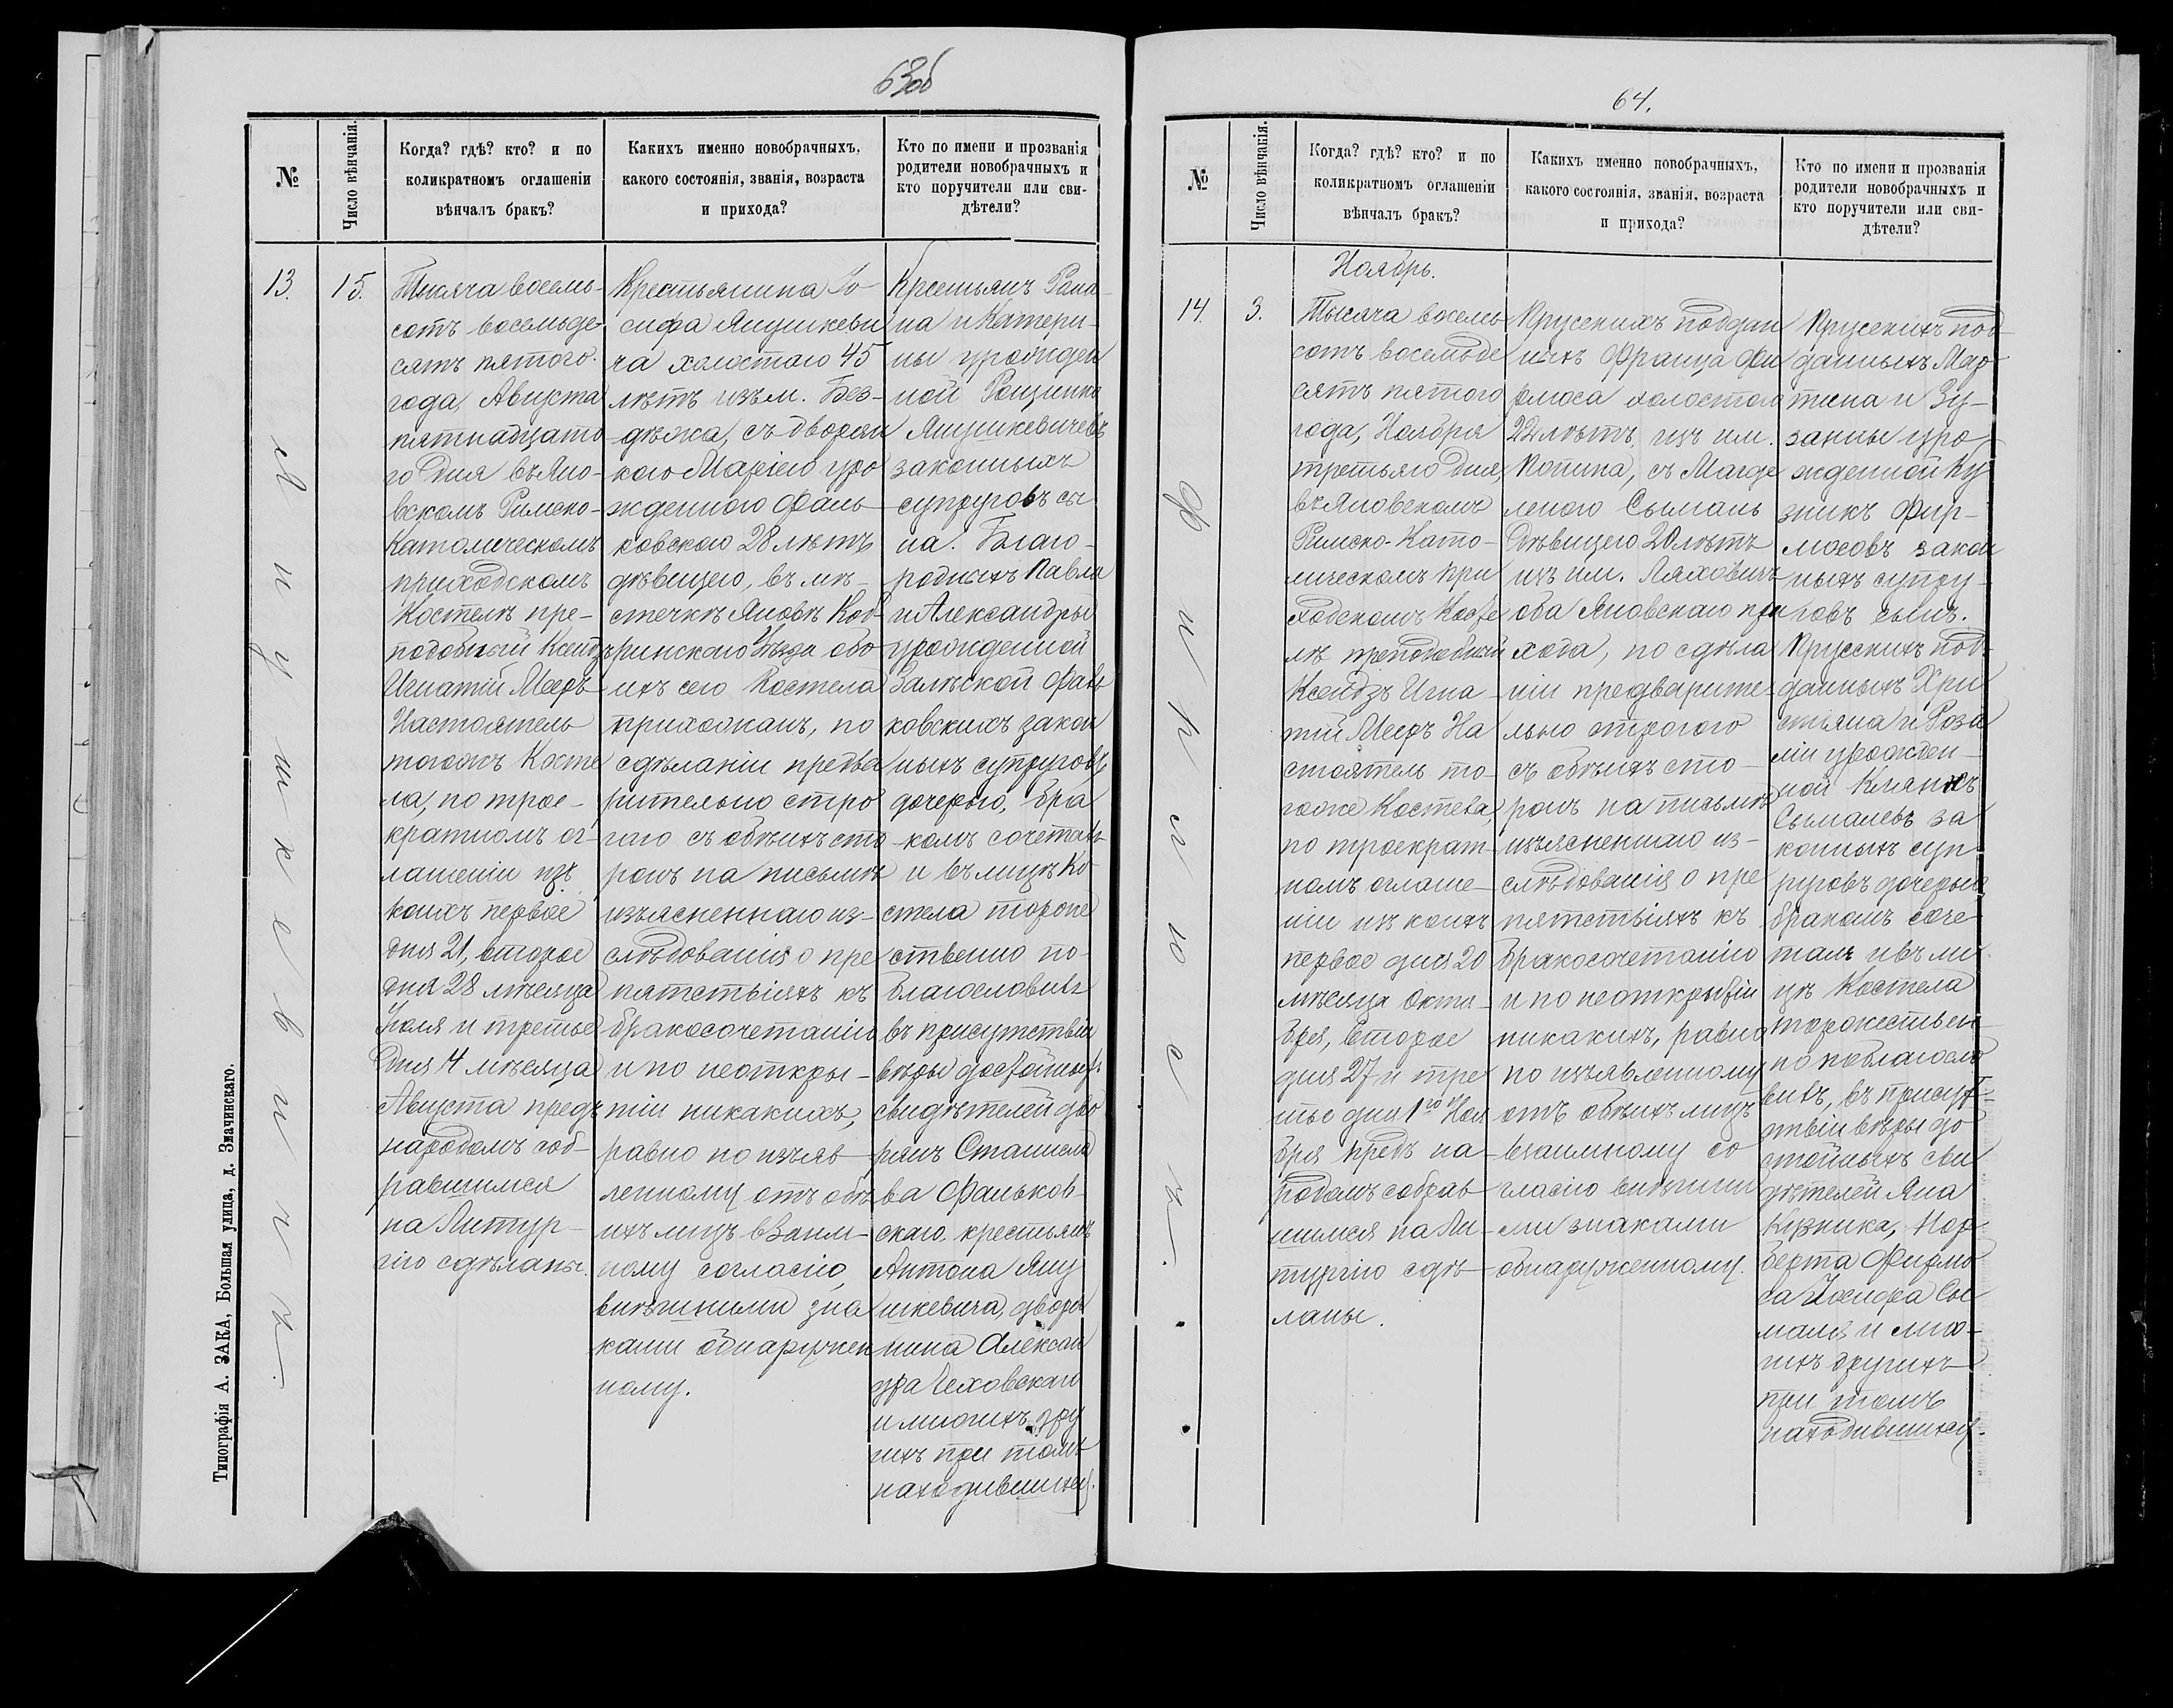 63об
№
Число вѣнчанія.
Когда? гдѣ? кто? и по
коликратномъ оглашеніи
вѣнчалъ бракъ?
Какихъ именно новобрачныхъ,
какого состоянія, званія, возраста
и прихода?
Кто по имени и прозванія
родители новобрачныхъ и
кто поручители или сви-
дѣтели?
13.
15.
Тысяча восемь-
сотъ восемьде-
сятъ пятого
года, Августа
пятнадцато
го дня въ Яно-
вскомъ Римско-
Католическомъ
приходскомъ
Костелѣ пре-
подобный Ксендзъ
Игнатій Мееръ
Настоятель
тогожъ Косте
ла, по трое-
кратномъ ог-
лашеніи изъ
коихъ первое
дня 21, второе
дня 28 мѣсяца
Іюля и третье
дня 4 мѣсяца
Августа предъ
народомъ соб-
равшимся
на Литур-
гію сдѣланы.
Крестьянина Іо
сифа Янушкеви
ча холостаго 45
лѣтъ изъ м. Без-
дѣжа, съ дворян
кою Маріею уро
жденною Фаль
ковскою 28 лѣтъ
дѣвицею, въ мѣ-
стечкѣ Яновѣ Коб-
ринскаго Уѣзда обо
ихъ сего Костела
прихожанъ, по
сдѣланіи предва
рительно стро
гаго съ обѣихъ сто
ронъ на письмѣ
изъясненнаго из-
слѣдованія о пре
пятствіяхъ къ
бракосочетанію
и по неоткры-
тіи никакихъ,
равно по изъяв
ленному отъ обѣ
ихъ лицъ взаим-
ному согласію,
внѣшними зна
ками обнаружен
ному.
Крестьянъ Рома-
на и Катери-
ны урожден
ной Рощенко
Янушкевичевъ
законныхъ
супруговъ сы
на. Благо-
родныхъ Павла
и Александры
урожденной
Залѣской Фаль
ковскихъ закон
ныхъ супруговъ
дочерью, бра
комъ сочеталъ
и въ лицѣ Ко
стела торже
ственно по-
благословилъ
въ присутствіи
вѣры достойныхъ
свидѣтелей дво
рянъ Станисла
ва Фальков-
скаго, крестьянъ
Антона Яну
шкевича, дворя
нина Алексан
дра Чеховскаго
и многихъ дру
гихъ при томъ
находившихся.
Янушкевичъ.
Типографія А. ЗАКА, Большая улица, д. Значинскаго.
64.
№
Число вѣнчанія.
Когда? гдѣ? кто? и по
коликратномъ оглашеніи
вѣнчалъ бракъ?
Какихъ именно новобрачныхъ,
какого состоянія, званія, возраста
и прихода?
Кто по имени и прозванія
родители новобрачныхъ и
кто поручители или сви-
дѣтели?
Ноябрь.
14.
3.
Тысяча восемь
сотъ восемьде
сятъ пятого
года, Ноября
третьяго дня,
въ Яновскомъ
Римско-Като-
лическомъ при
ходскомъ Косте
лѣ преподобный
Ксендзъ Игна
тій Мееръ На
стоятель то-
гоже Костела,
по троекрат-
номъ оглаше-
ніи изъ коихъ
первое дня 20
мѣсяца Октя-
бря, второе
дня 27 и тре
тье дня 1го Ноя
бря предъ на
родомъ собрав
шимся на Ли-
тургію сдѣ-
ланы.
Прусскихъ поддан
ныхъ Франца Фи
рмоса холостаго
22 лѣтъ, изъ им.
Попина, съ Магда
леною Сымаль
Дѣвицею 20 лѣтъ
изъ им. Ляховичъ
оба Яновскаго при
хода, по сдѣла
ніи предварите
льно строгого
съ обѣихъ сто-
ронъ на письмѣ
изъясненнаго из-
слѣдованія о пре
пятствіяхъ къ
бракосочетанію
и по неоткрытіи
никакихъ, равно
по изъявленному
отъ обѣихъ лицъ
взаимному со
гласію внѣшни
ми знаками
обнаруженному.
Прусскихъ под
данныхъ Мар
тина и Зу-
занны уро
жденной Ку
зникъ Фир-
мосовъ закон
ныхъ супру-
говъ сынъ.
Прусскихъ под
данныхъ Хри
стіяна и Роза
ліи урожден-
ной Клянкъ
Сымалевъ за
конныхъ суп
руговъ дочерью
бракомъ соче
талъ и въ ли
цѣ Костела
торжествен
но поблагосло
вилъ, въ присут-
ствіи вѣры до
стойныхъ сви
дѣтелей Яна
Кузника, Нор
берта Фирмо
са Іосифа Сы
маля и мно-
гихъ другихъ
при томъ
находившихся.